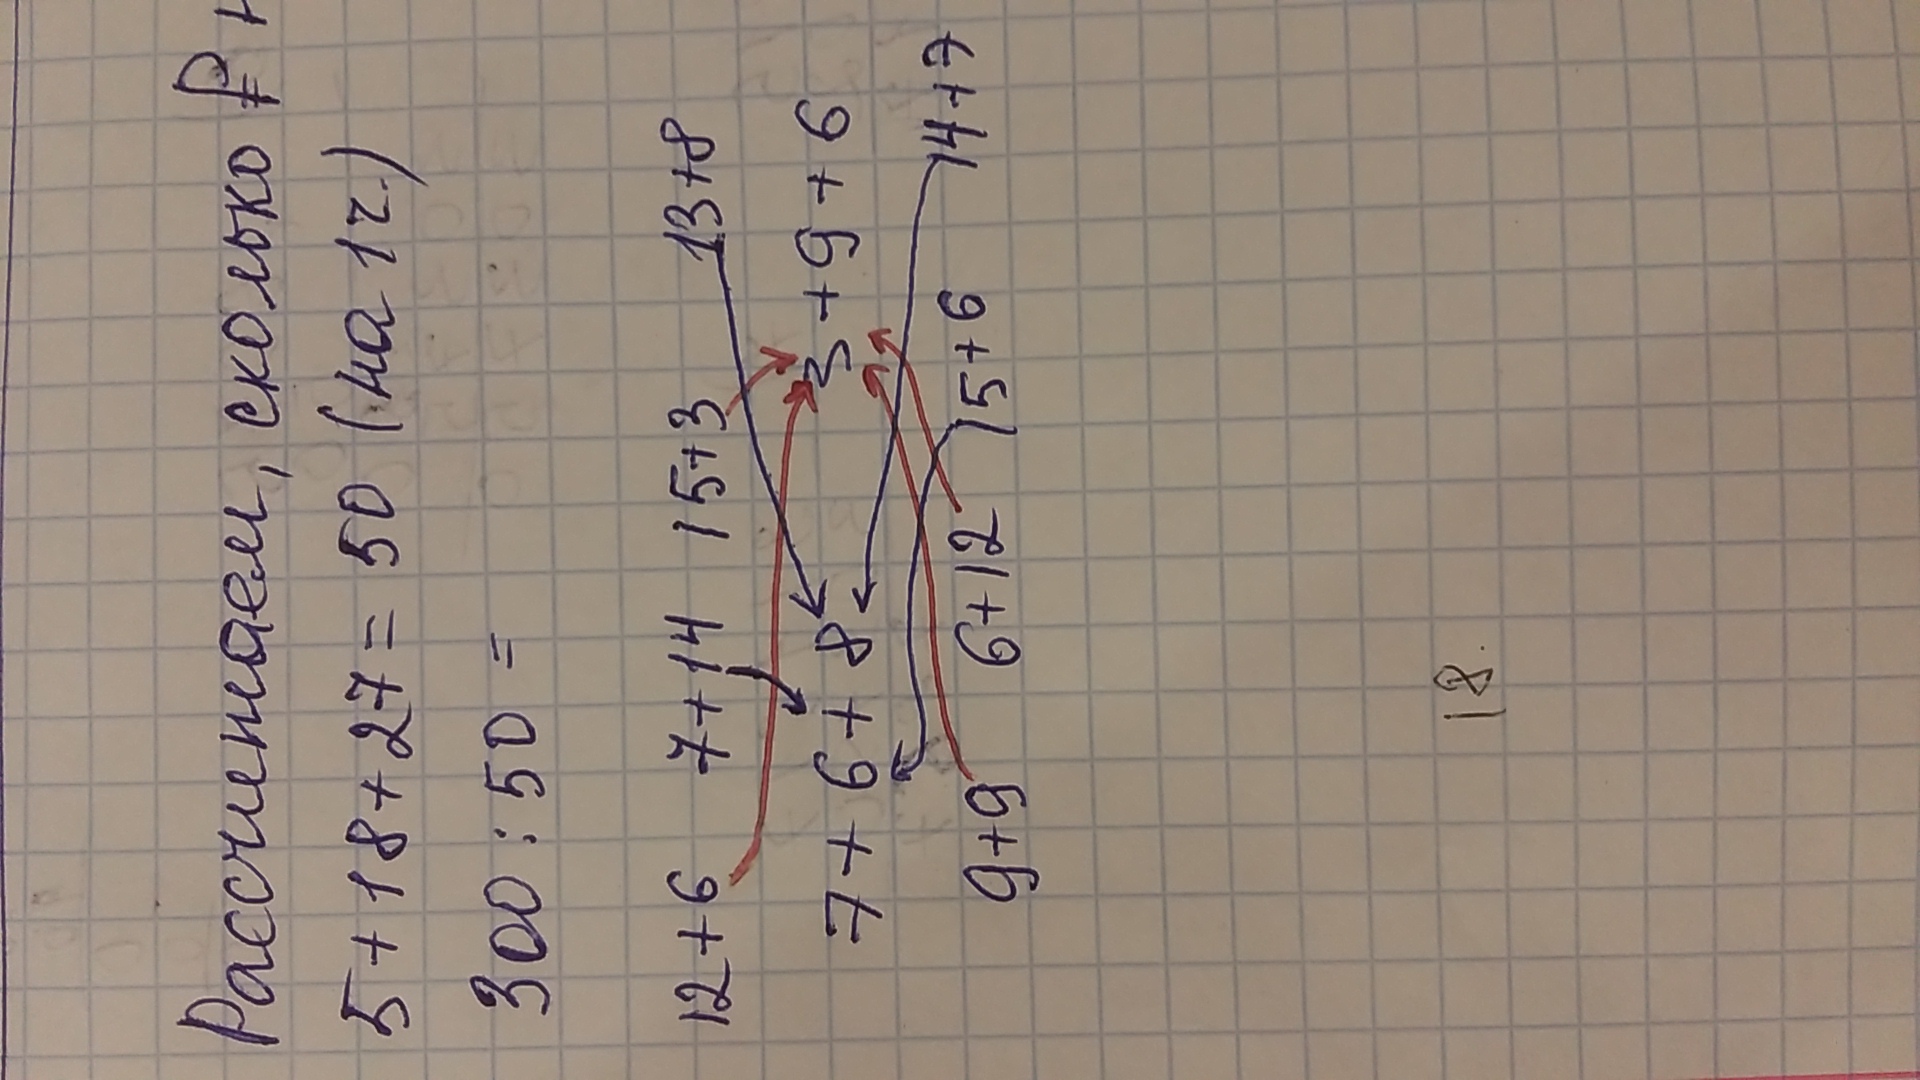 Рассчитаем, сколько ₽ н
5+18+27=50 (на 1г.)
300:50=
12+6 7+14 15+3 13+8
7+6+8 3+9+6
9+9 6+12 15+6 14+7
18.